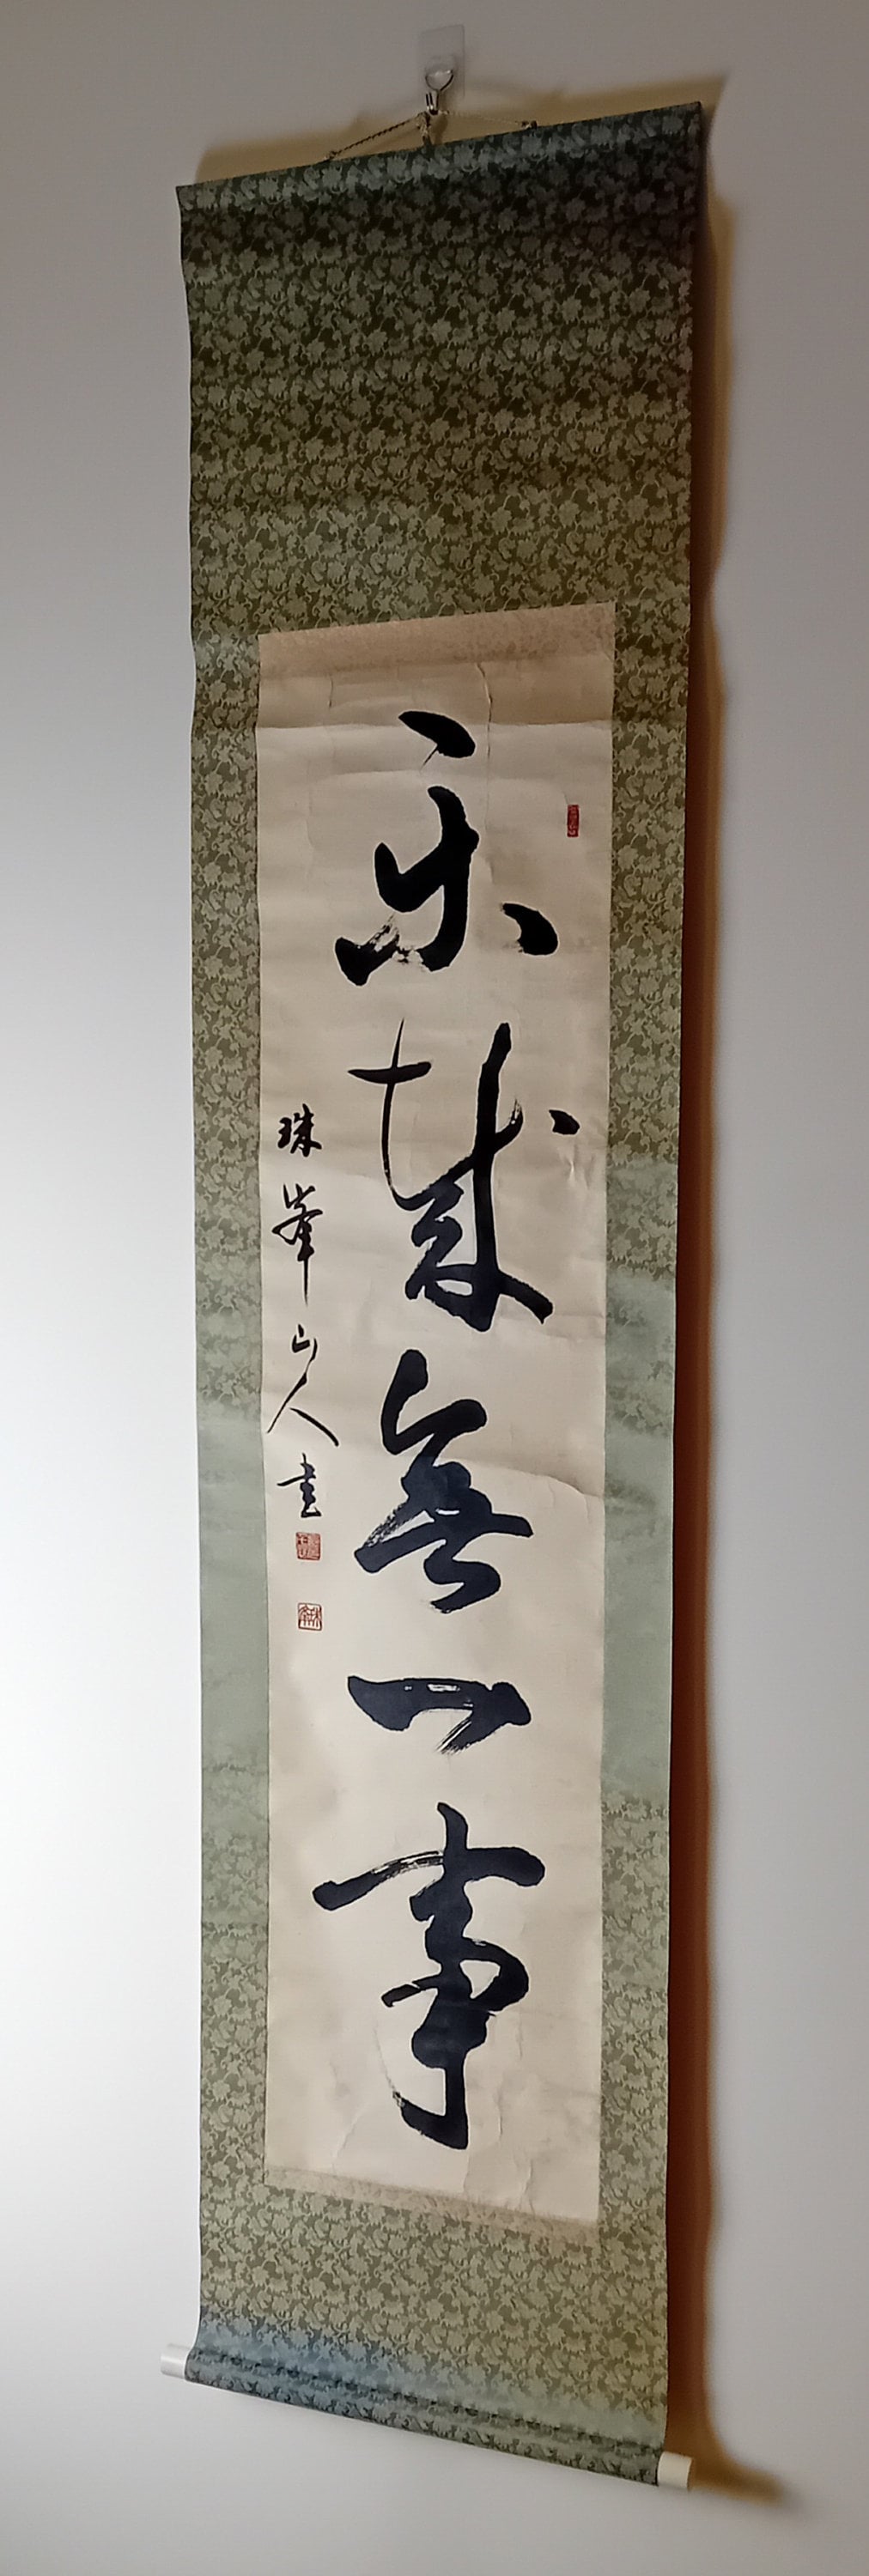 樂哉無一事
珠峯山人書